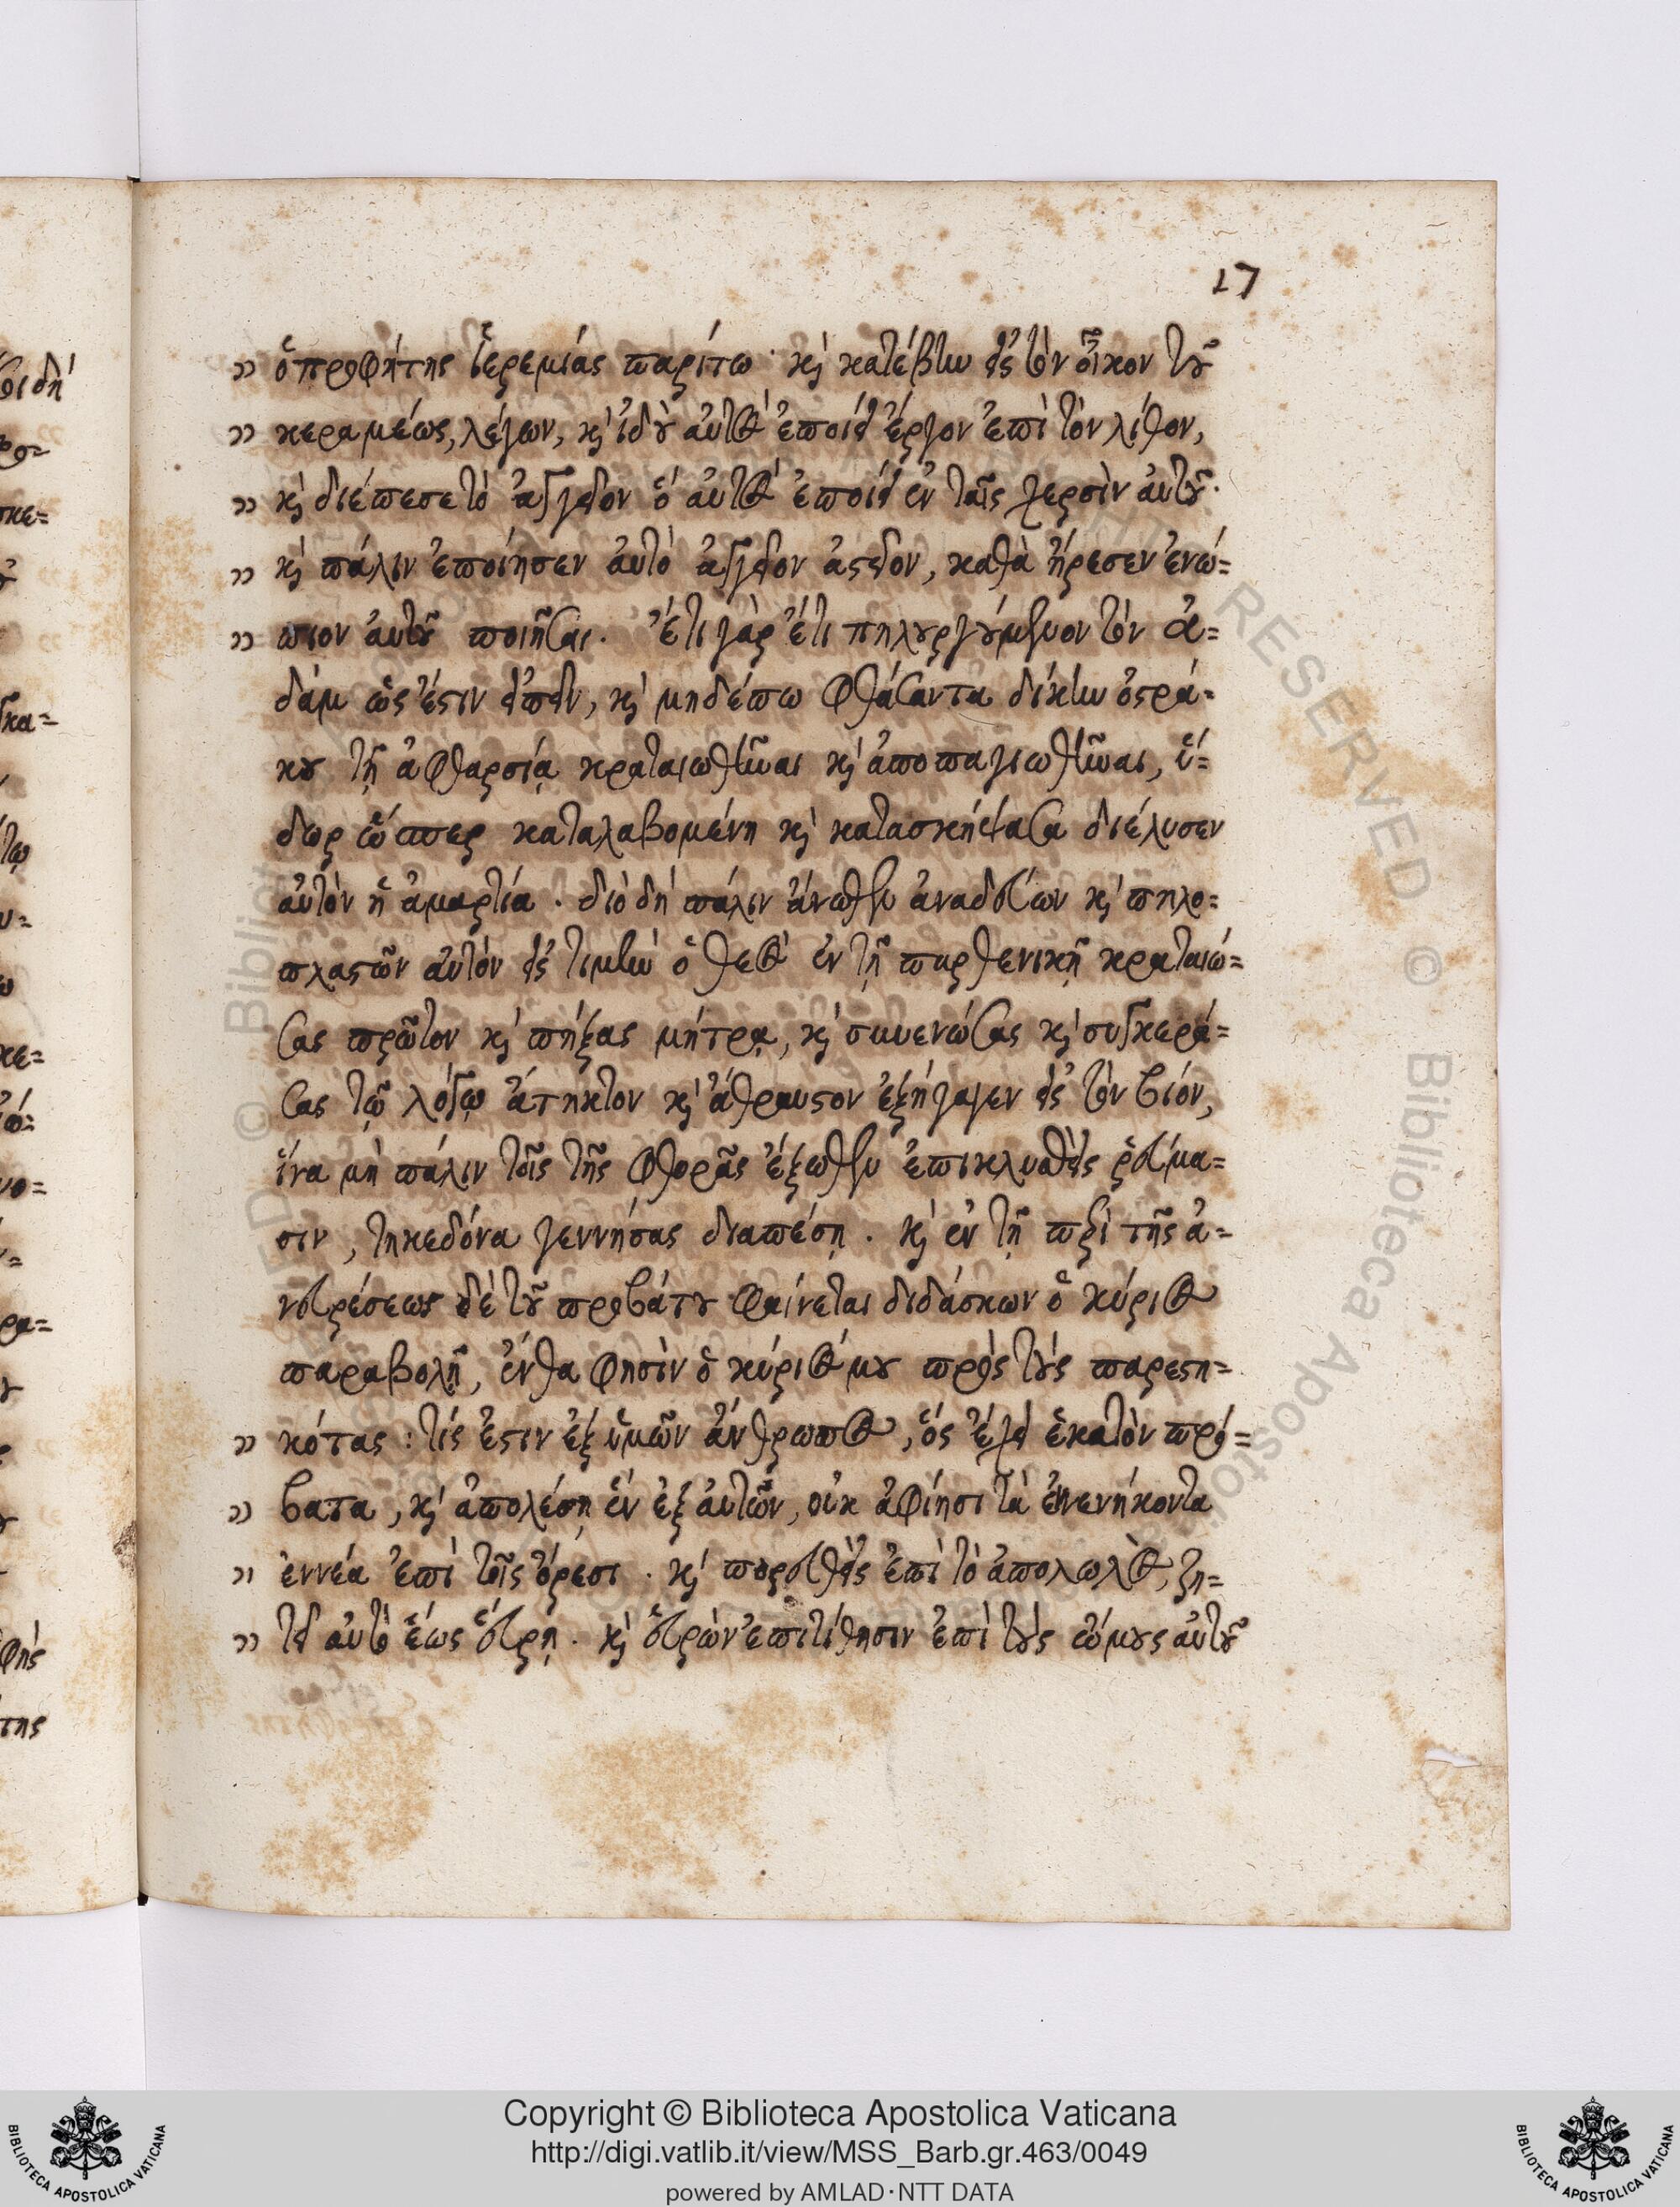 17
ὁ προφήτης ἱερεμίας παρίτω· καὶ κατέβην εἰς τὸν οἶκον τοῦ
κεραμέως, λέγων, καὶ ἰδοὺ αὐτὸς ἐποίει ἔργον ἐπὶ τὸν λίθον,
καὶ διέπεσε τὸ ἀγγεῖον ὃ αὐτὸς ἐποίει ἐν ταῖς χερσὶν αὐτοῦ·
καὶ πάλιν ἐποίησεν αὐτὸ ἀγγεῖον ἀστεῖον, καθὰ ἤρεσεν ἐνώ=
πιον αὐτοῦ ποιῆσαι. ἔτι γὰρ ἔτι πηλουργούμενον τὸν ἀ=
δάμ ὡς ἔστιν εἰπεῖν, καὶ μηδέπω φθάσαντα δίκην ὀστρά=
κου τῇ ἀφθαρσίᾳ κραταιωθῆναι καὶ ἀποπαγιωθῆναι, ὕ=
δωρ ὥσπερ καταλαβομένη καὶ κατασκήψασα διέλυσεν
αὐτὸν ἡ ἁμαρτία. διὸ δὴ πάλιν ἄνωθεν ἀναδεύων καὶ πηλο=
πλαστῶν αὐτὸν εἰς τιμὴν ὁ θεὸς ἐν τῇ παρθενικῇ κραταιώ=
σας πρῶτον καὶ πήξας μήτρᾳ, καὶ συνενώσας καὶ συγκερά=
σας τῷ λόγῳ ἄτηκτον καὶ ἄθραυστον ἐξήγαγεν εἰς τὸν βιόν,
ἵνα μὴ πάλιν τοῖς τῆς φθορᾶς ἔξωθεν ἐπικλυσθεὶς ῥεύμα=
σιν, τηκεδόνα γεννήσας διαπέσῃ. καὶ ἐν τῇ περὶ τῆς ἀ=
νευρέσεως δὲ τοῦ προβάτου φαίνεται διδάσκων ὁ κύριος
παραβολῇ, ἔνθα φησὶν ὁ κύριός μου πρὸς τοὺς παρεστη=
κότας: τίς ἔστιν ἐξ ὑμῶν ἄνθρωπος, ὃς ἔχει ἑκατὸν πρό=
βατα, καὶ ἀπολέσῃ ἓν ἐξ αὐτῶν, οὐκ ἀφίησι τὰ ἐνενήκοντα
ἐννέα ἐπὶ τοῖς ὄρεσι. καὶ πορευθεὶς ἐπὶ τὸ ἀπολωλὸς, ζη=
τεῖ αὐτὸ ἕως εὕρῃ. καὶ εὑρὼν ἐπιτίθησιν ἐπὶ τοὺς ὤμους αὐτοῦ
Copyright © Biblioteca Apostolica Vaticana
http://digi.vatlib.it/view/MSS_Barb.gr.463/0049
powered by AMLAD·NTT DATA